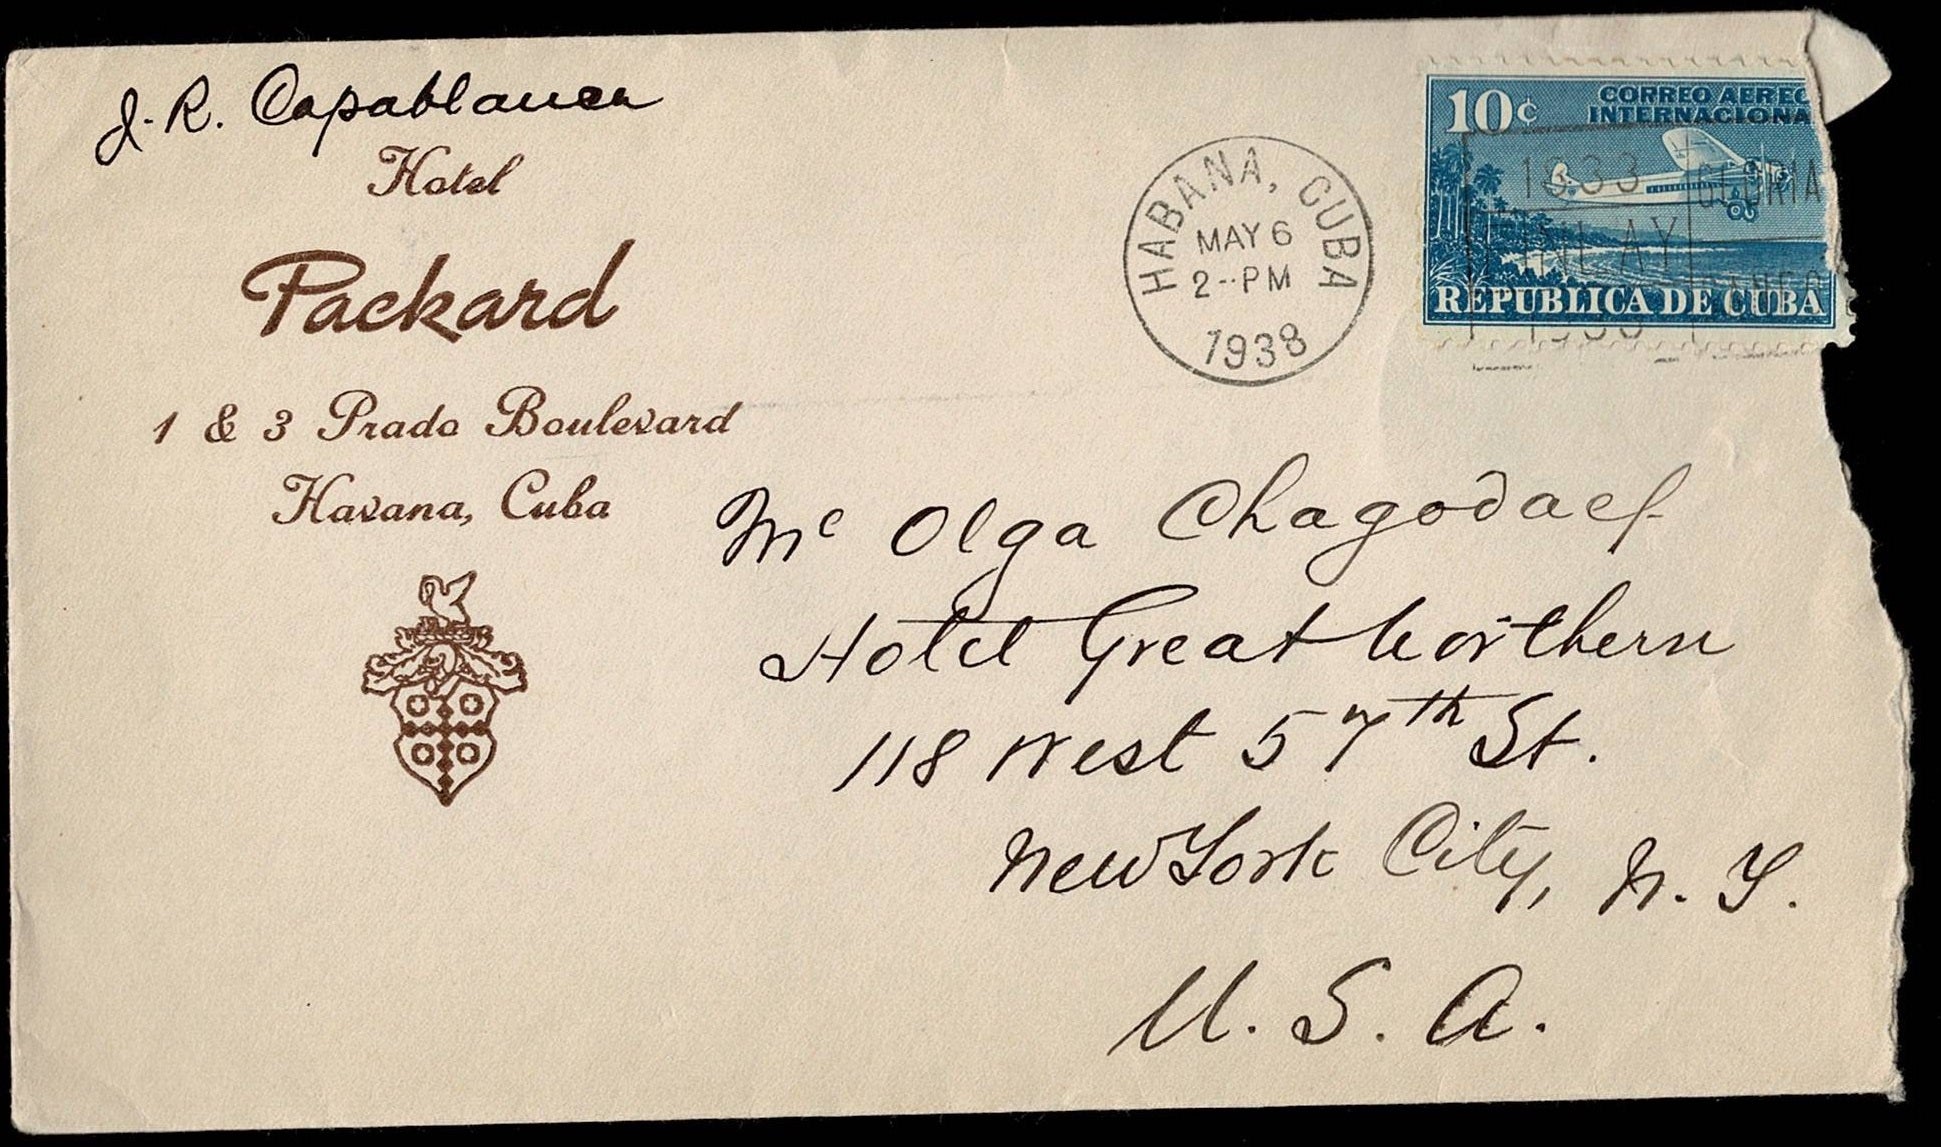 J. R. Capablanca
Hotel
Packard
1 & 3 Prado Boulevard
Havana, Cuba
HABANA, CUBA
MAY 6
2--PM
1938
10¢
CORREO AEREO
INTERNACIONA
1833
GLORIA
FINLAY
REPUBLICA DE CUBA
Mc Olga Chagodaef
Hotel Great Northern
118 West 57th St.
New York City, N. Y.
U. S. A.